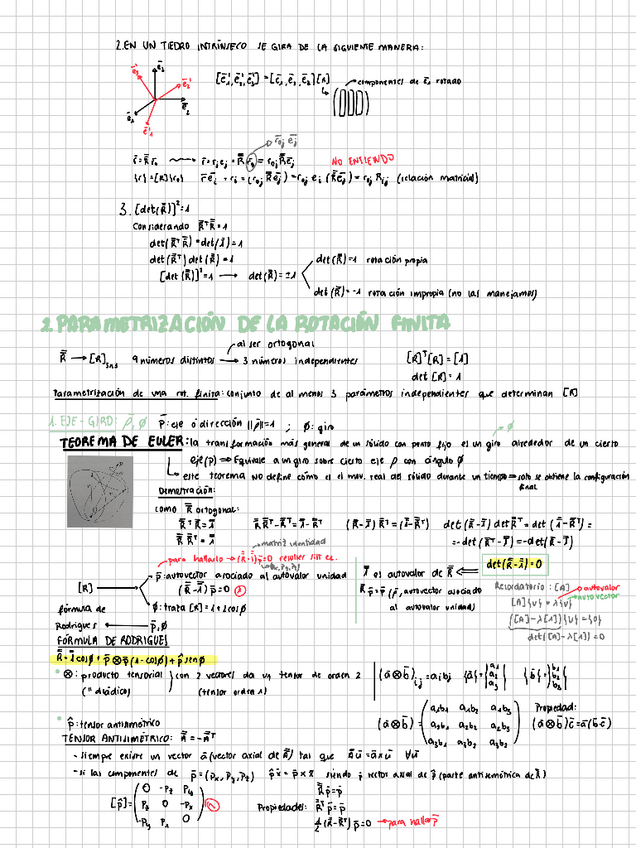 2. EN UN TIEDRO INTRÍNSECO SE GIRA DE LA SIGUIENTE MANERA:
[ē'₁, ē'₂, ē'₃] = [ē₁, ē₂, ē₃][R]
componentes de ē₁ rotado
r̄₀ⱼ ēⱼ
NO ENTIENDO
{r} = [R]{r₀}
(relación matricial)
3. [det(R̿)]² = 1
Considerando R̿ᵀR̿ = 1
det(R̿ᵀR̿) = det(1̿) = 1
det(R̿ᵀ) det(R̿) = 1
[det(R̿)]² = 1 → det(R̿) = ±1
det(R̿) = 1 rotación propia
det(R̿) = -1 rotación impropia (no las manejamos)
2. PARAMETRIZACIÓN DE LA ROTACIÓN FINITA
al ser ortogonal
R̿ → [R]₃ₓ₃ 9 números distintos → 3 números independientes
[R]ᵀ[R] = [1]
det [R] = 1
Parametrización de una rot. finita: conjunto de al menos 3 parámetros independientes que determinan [R]
1. EJE - GIRO: p̄, Ø p̄: eje o dirección ||p̄|| = 1 ; Ø: giro
TEOREMA DE EULER: la transformación más general de un sólido con punto fijo es un giro alrededor de un cierto
eje (p̄) ⇒ Equivale a un giro sobre cierto eje p con ángulo Ø
este teorema NO define cómo es el mov. real del sólido durante un tiempo ⇒ solo se obtiene la configuración
final
Demostración:
como R̿ ortogonal:
R̿ᵀR̿ = 1̿
R̿R̿ᵀ = 1̿
R̿R̿ᵀ - R̿ᵀ = 1̿ - R̿ᵀ
(R̿ - 1̿) R̿ᵀ = (1̿ - R̿ᵀ)
det(R̿ - 1̿) det R̿ᵀ = det(1̿ - R̿ᵀ) =
= - det(R̿ᵀ - 1̿) = - det(R̿ - 1̿)
matriz identidad
para hallarlo → (R̿ - 1̿) p̄ = 0 resolver sist ec.
[R]
p̄: autovector asociado al autovalor unidad
(R̿ - 1̿) p̄ = 0
Ø: traza [R] = 1 + 2cosØ
fórmula de
Rodrigues
p̄, Ø
1 es autovalor de R̿ ⇐ det(R̿ - 1̿) = 0
R̿ p̄ = p̄ (p̄, autovector asociado
al autovalor unidad)
Recordatorio: [A]
[A]{v} = λ{v}
autovalor
autovector
([A] - λ[1]){v} = {0}
det([A] - λ[1]) = 0
FÓRMULA DE RODRIGUES
R̿ = 1̿ cosØ + p̄ ⊗ p̄ (1 - cosØ) + p̂ senØ
⊗: producto tensorial (= diádico) } con 2 vectores da un tensor de orden 2
(tensor orden 1)
(ā ⊗ b̄)ᵢⱼ = aᵢbⱼ {ā} = {a₁ a₂ a₃} {b̄} = {b₁ b₂ b₃}
(ā ⊗ b̄) = (a₁b₁ a₁b₂ a₁b₃
a₂b₁ a₂b₂ a₂b₃
a₃b₁ a₃b₂ a₃b₃)
Propiedad:
(ā ⊗ b̄) c̄ = ā (b̄·c̄)
p̂: tensor antisimétrico
TENSOR ANTISIMÉTRICO: A̿ = - A̿ᵀ
- siempre existe un vector ā (vector axial de A̿) tal que A̿ ū = ā × ū ∀ū
- si las componentes de p̄ = (pₓ, p_y, p_z) p̂ x̄ = p̄ × x̄ siendo p̄ vector axial de p̂ (parte antisimétrica de R̿)
[p̂] = (0 -p_z p_y
p_z 0 -pₓ
-p_y pₓ 0)
Propiedades:
R̿ p̄ = p̄
R̿ᵀ p̄ = p̄
½ (R̿ - R̿ᵀ) p̄ = 0 → para hallar p̄